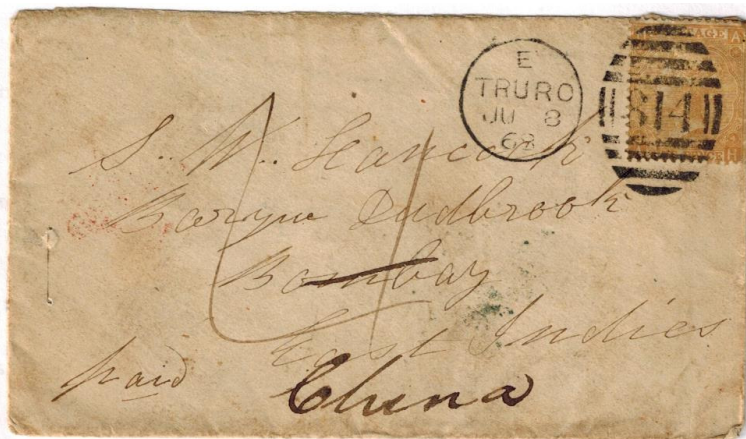 E
TRURO
JU 8
68
814
AGE A
S. W. Hancock
Barque Dudbrook
Bombay
East Indies
China
paid